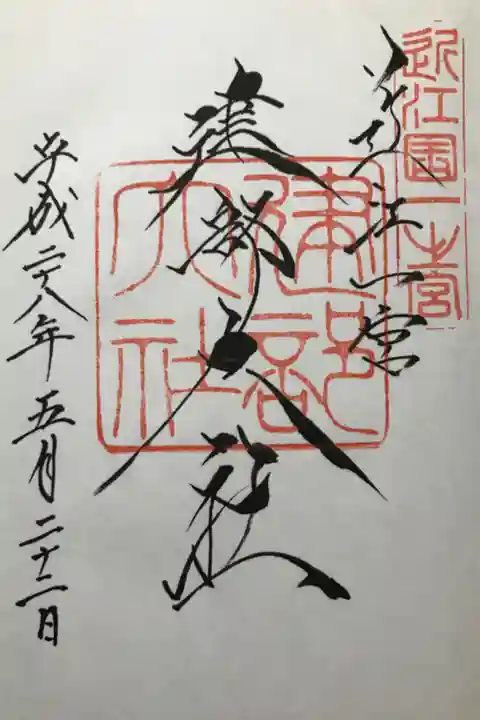 近江國一之宮
近江一宮
建部大社
建部
大社
平成二十八年五月二十二日